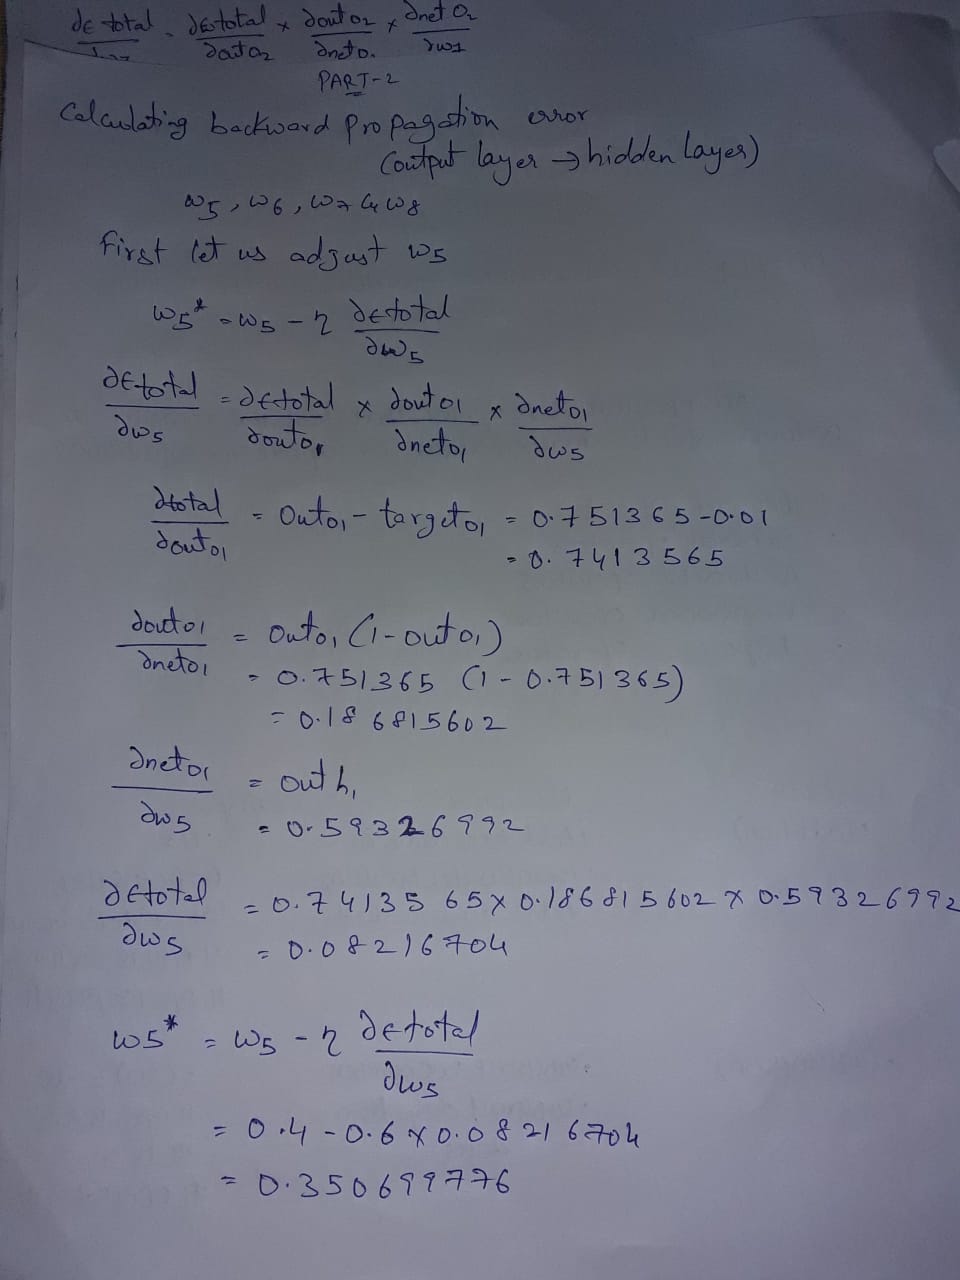 ∂E total = ∂E total × ∂out o2 × ∂net o2
∂out o2 ∂net o. ∂w1
PART-2
Calculating backward propagation error
(output layer → hidden layer)
w5, w6, w7 & w8
first let us adjust w5
w5* = w5 - η ∂E total
∂w5
∂E total = ∂E total × ∂out o1 × ∂net o1
∂w5 ∂out o1 ∂net o1 ∂w5
∂total = Out o1 - target o1 = 0.751365 - 0.01
∂out o1 = 0.7413565
∂out o1 = Out o1 (1 - out o1)
∂net o1 = 0.751365 (1 - 0.751365)
= 0.186815602
∂net o1 = out h1
∂w5 = 0.59326992
∂E total = 0.7413565 × 0.186815602 × 0.59326992
∂w5 = 0.08216704
w5* = w5 - η ∂E total
∂w5
= 0.4 - 0.6 × 0.08216704
= 0.350699776